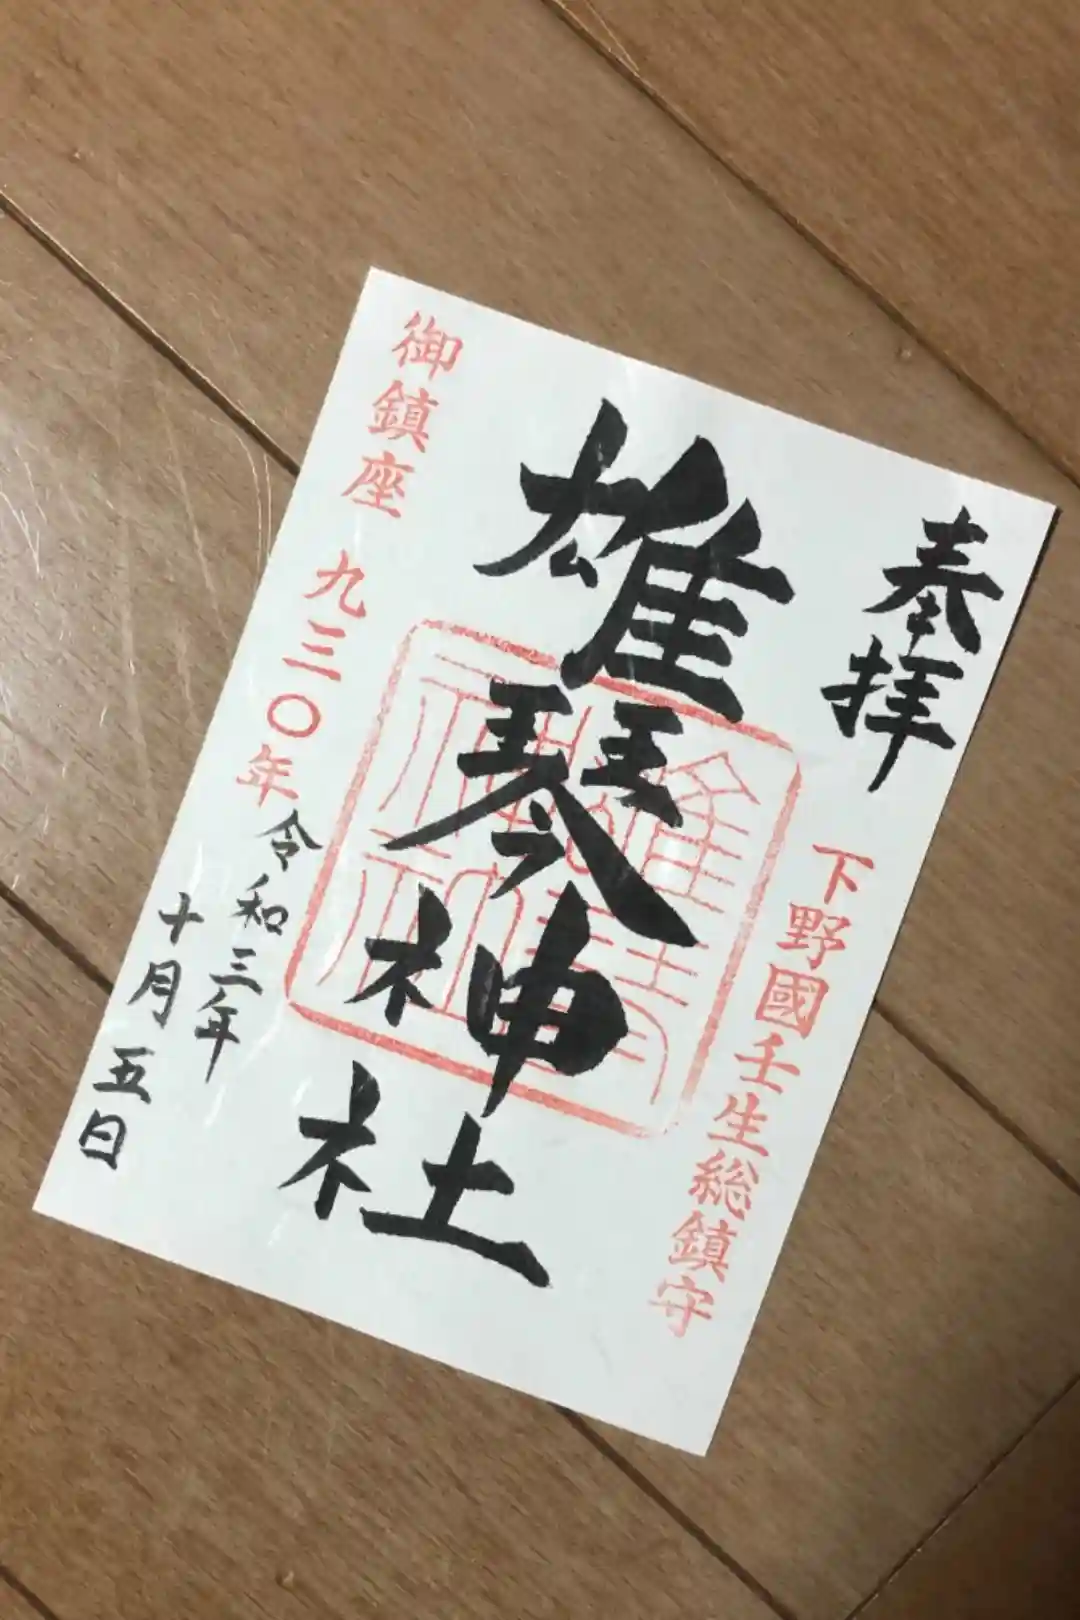 奉拝
下野國壬生総鎮守
雄琴神社
御鎮座 九三〇年
令和三年
十月五日